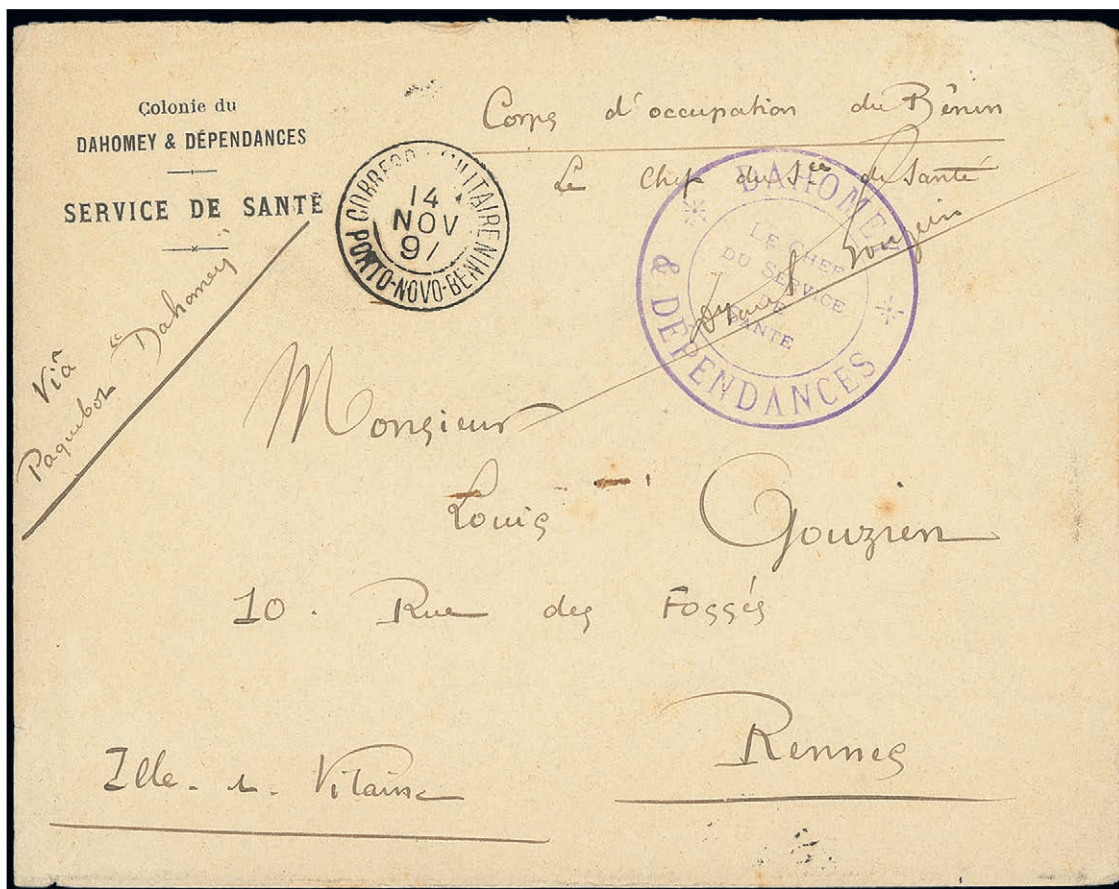 Colonie du
DAHOMEY & DÉPENDANCES
SERVICE DE SANTÉ
CORRESP. MILITAIRE
14
NOV
97
PORTO-NOVO-BENIN
Corps d'occupation du Bénin
Le Chef du Sce de Santé
Gouzien
DAHOMEY
& DÉPENDANCES
LE CHEF
DU SERVICE
DE
SANTÉ
Via
Paquebot "Dahomey"
Monsieur
Louis Gouzien
10. Rue des Fossés
Rennes
Ille-&-Vilaine